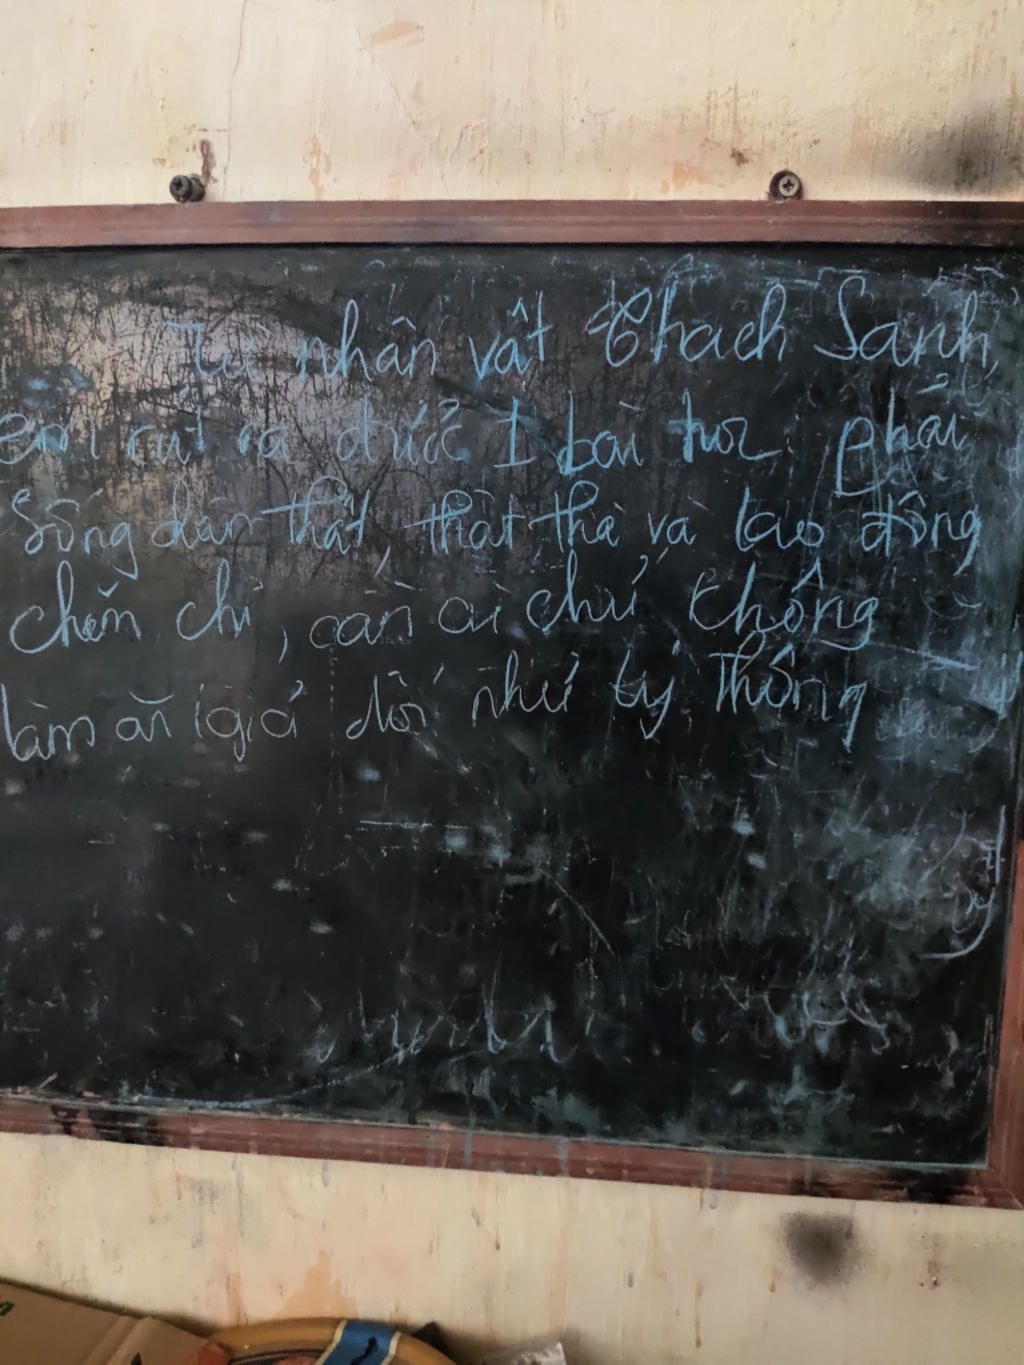 Từ nhân vật Thạch Sanh,
em rút ra được 1 bài học: phải
sống chân thật, thật thà và lao động
chăm chỉ, cần cù chứ không
làm ăn giả dối như Lý Thông